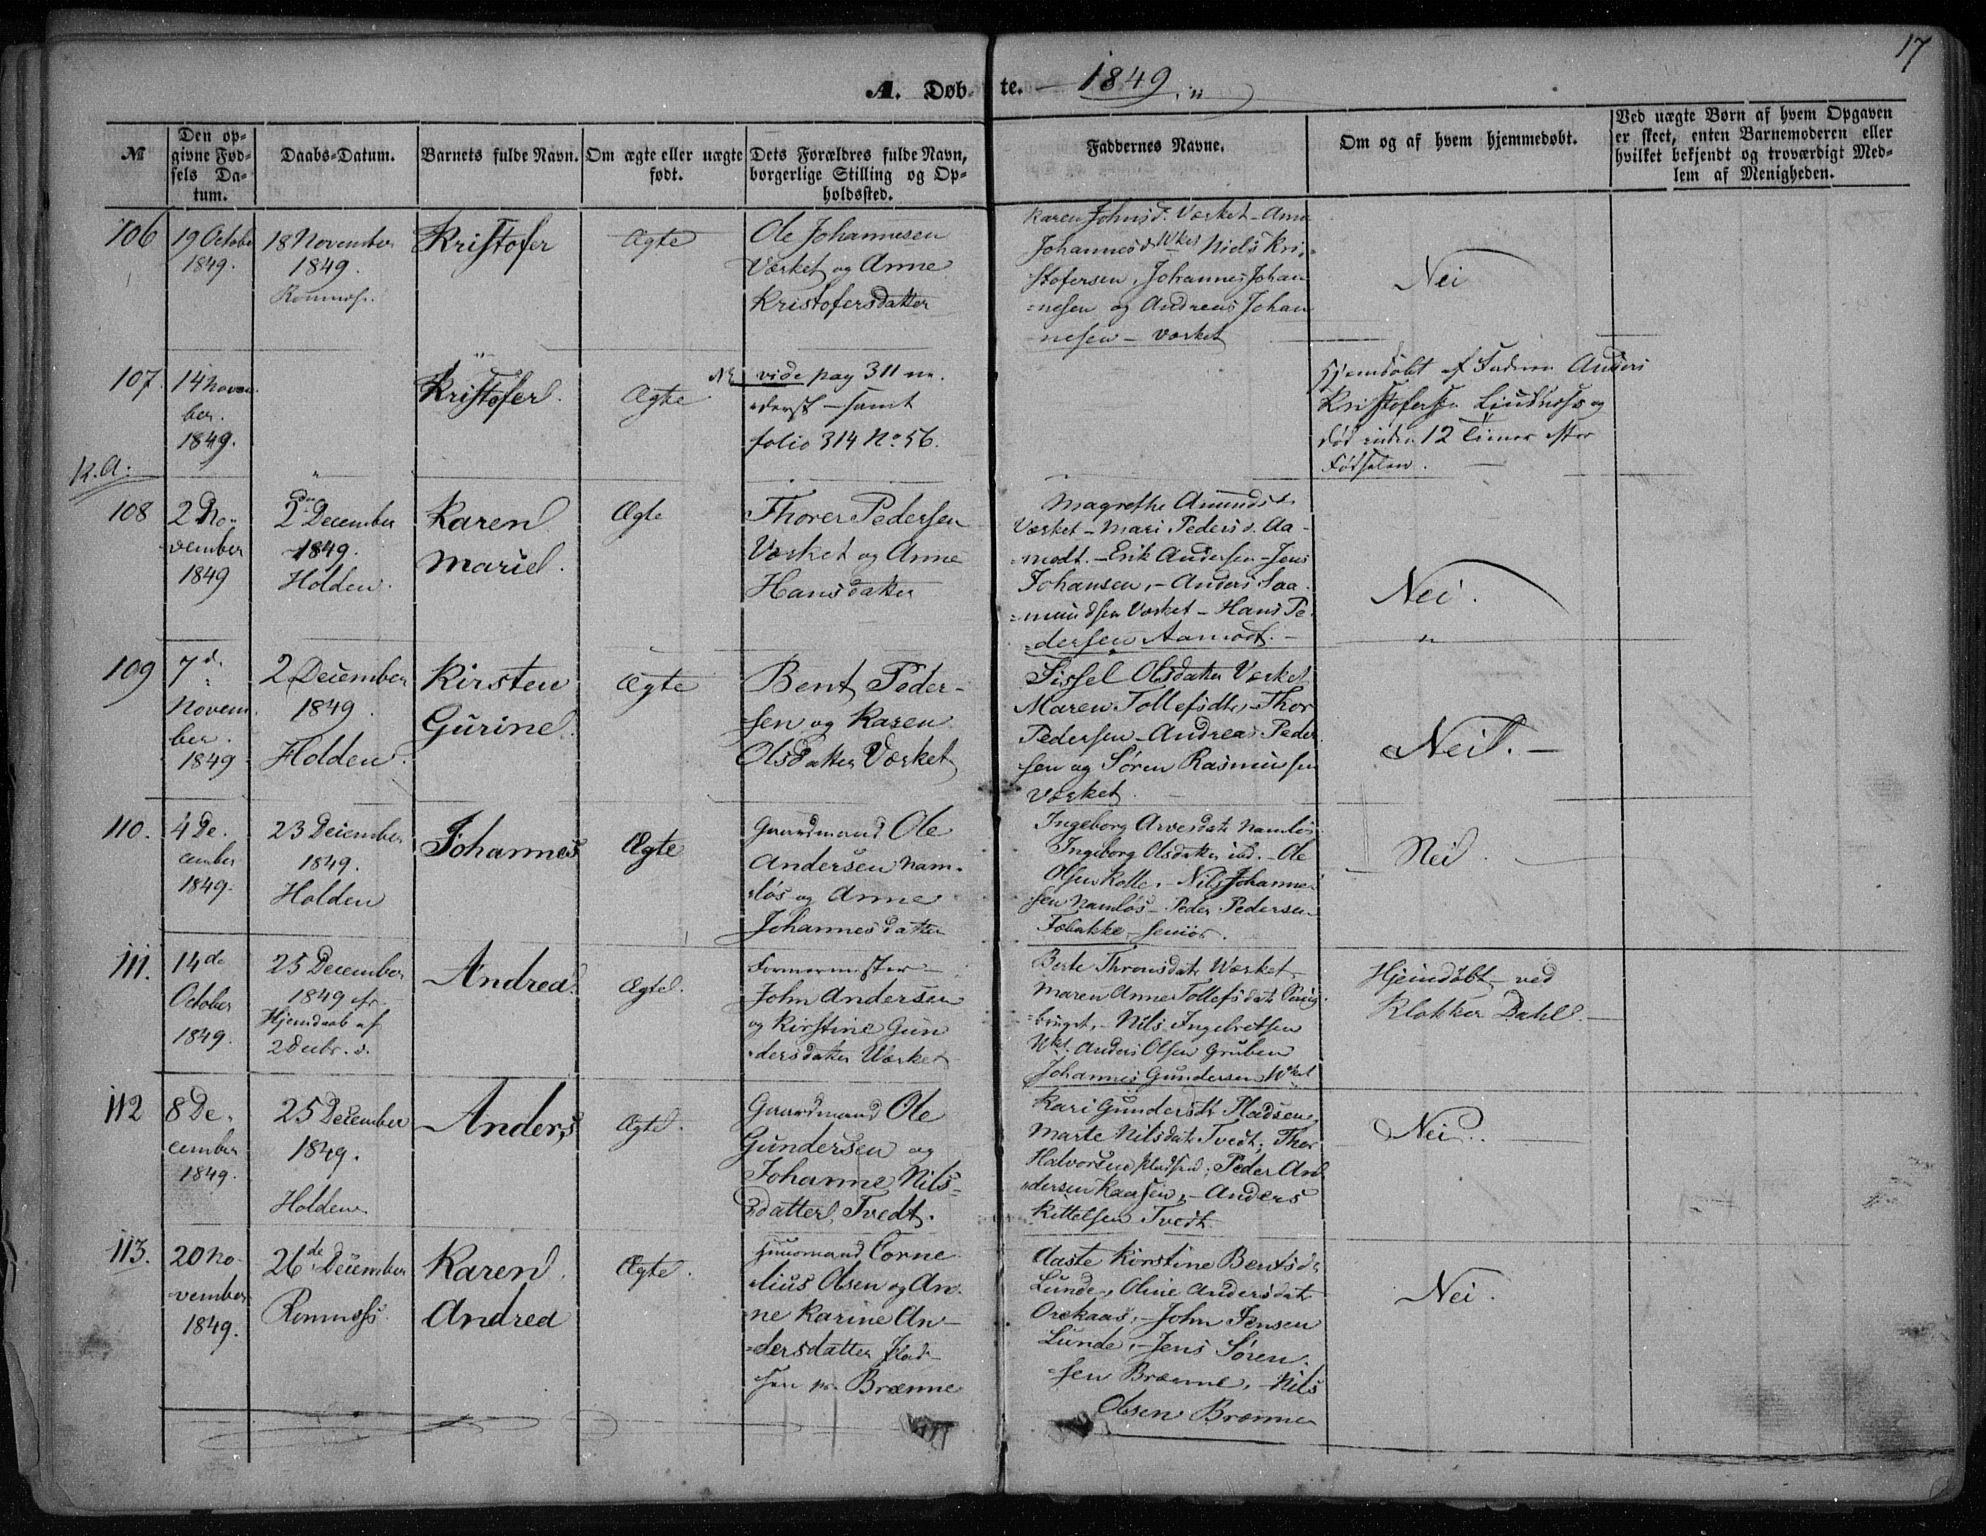 17
A. Døbte. 1849.
№
Den opgivne Fødsels Datum.
Daabs-Datum.
Barnets fulde Navn.
Om ægte eller uægte født.
Dets Forældres fulde Navn, borgerlige Stilling og Opholdssted.
Faddernes Navne.
Om og af hvem hjemmedøbt.
Ved uægte Børn af hvem Opgaven er skeet, enten Barnemoderen eller hvilket bekjendt og troværdigt Medlem af Menigheden.
106
19 Octobe
1849.
18 November
1849.
Kristofer
Ægte
Ole Johannesen
Værket og Anne
Kristofersdatter
Karen Johnsd. Værket - Anne
Johannesd Wket Niels Kri-
stofersen, Johannes Johan
=nesen og Andreas Johan
nesen - Værket
Nei
107.
14 Novem
ber.
1849.
Kristofer.
Ægte
NB vide pag 311 n.
ederst - samt
folio 314 No. 56.
Hjemdøbt af Faderen Anders
Kristofersen
død inden 12 Timer efter
Fødselen.
K.A.
108
2 No-
vember
1849
2den December
1849.
Holden.
Karen
Marie.
Ægte
Thorer Pedersen
Værket og Anne
Hansdatter
Magrethe Amundsd.
Værket - Mari Pedersd. Aa-
=modt. - Erik Andersen - Jens
Johansen, - Anders Saa
=mundsen Værket - Hans Pe
=dersen Aamodt. -
Nei.
109
7d.
Novem
ber.
1849
2 December
1849.
Holden.
Kirsten
Gurine.
Ægte
Bent Peder-
sen og Karen
Olsdatter Værket
Sissel Olsdatter Værket
Maren Tollefsdtr, - Thor
Pedersen - Andreas Peder
sen og Søren Rasmussen
Værket.
Nei. -
110.
4 De.
cember
1849.
23 December
1849.
Holden
Johannes
Ægte
Gaardmand Ole
Andersen Nam-
løs og Anne
Johannesdatter
Ingeborg Arvesdatr Namløs
Ingeborg Olsdatter ibd. - Ole
Olsen Kolle, - Nils Johanne
sen Namløs - Peder Pedersen
senior.
Nei.
111.
14de
October
1849.
25 December
1849 efr.
Hjemdaab af
2 Decbr. d.
Andrea.
Ægte.
Formermester
John Andersen
og Kirstine Gun
dersdatter Værket
Berte Thronsdatr Værket
Maren Anne Tollefsdatr
=bruget, - Nils Ingebretsen
Wket. Anders Olsen Gruben
Johannes Gundersen Wket
Hjemdøbt - ved
Klokker Dahl -
112
8 De.
cember
1849.
25 December
1849.
Holden
Anders
Ægte.
Gaardmand Ole
Gundersen og
Johanne Nils-
datter, Tvedt.
Kari Gundersdr Pladsen,
Marte Nilsdatr Tvedt; Thor
Halvorsen Pladsen; Peder An
dersen Kaasen, - Anders
Kittelsen Tvedt.
Nei.
113.
20 No-
vember
1849.
26de December
Romnæs.
Karen
Andrea
Ægte.
Huusmand Corne
lius Olsen og An
ne Karine An-
=dersdatter Plad-
sen pr. Brænne
Aaste Kirstine Bentsd.
Lunde, Oline Andersdat
Orekaas, - John Jensen
Lunde, - Jens Søren
sen Brænne, - Nils
Olsen Brænne
Nei.